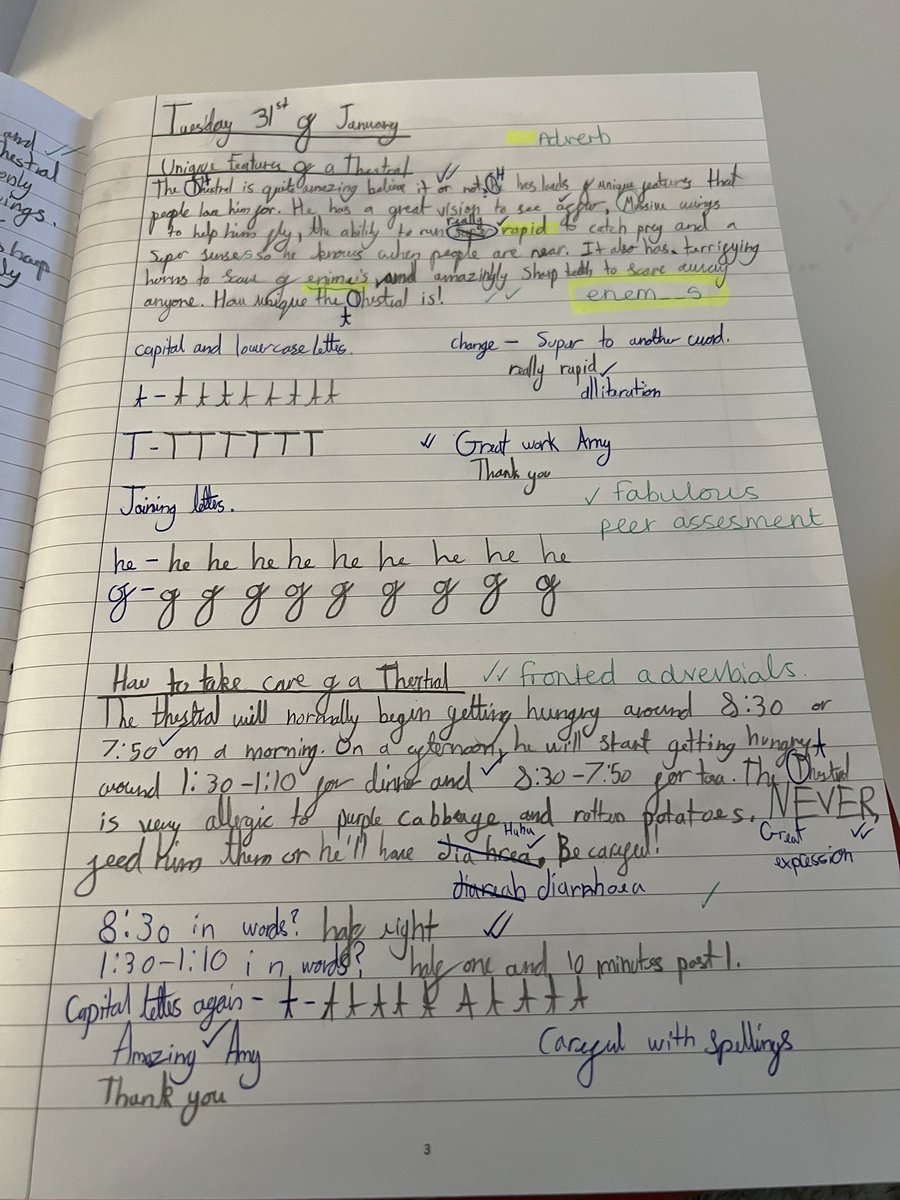 and
thestral
only
wings.
sharp
ly
Tuesday 31st of January
Adverb
Unique features of a Thestral
The Thestral is quite amazing believe it or not. H has loads of unique features that
people love him for. He has a great vision to see affar, Massive wings
really
to help him fly, the ability to run super rapid to catch prey and a
super senses so he knows when people are near. It also has terrifying
horns to scare of enimeis and amazingly sharp teeth to scare away
anyone. How unique the Thestral is!
enem__s
t
capital and lowercase lettes.
change - Super to another word.
really rapid
alliteration
t - t t t t t t t t
T - T T T T T T
Great work Amy
Thank you
Joining lettes.
fabulous
peer assesment
he - he he he he he he he he he
of - of of of of of of of of of
How to take care of a Thestral
fronted adverbials.
The thestral will normally begin getting hungry around 8:30 or
7:50 on a morning. On a afternoon, he will start getting hungry
around 1:30-1:10 for dinner and 8:30-7:50 for tea. The thestral
t
is very allegic to purple cabbage and rotten potatoes. NEVER,
Great
expression
Haha
feed him them or he'll have dia hrea. Be careful!
diareah diarrhoea
8:30 in words? half eight
1:30-1:10 in words? half one and 10 minutes past 1.
Capital lettes again - t - t t t t t t t t t t
Amazing Amy
Careful with spellings
Thank you
3